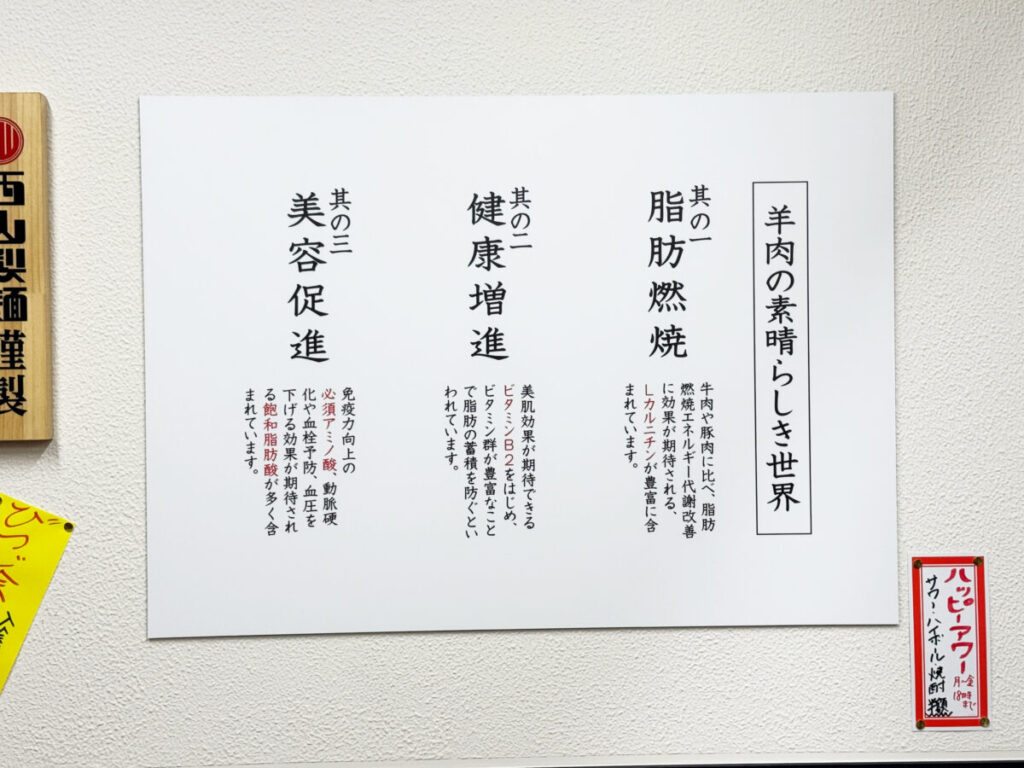 羊肉の素晴らしき世界
其の一
脂肪燃焼
牛肉や豚肉に比べ、脂肪
燃焼エネルギー代謝改善
に効果が期待される、
Lカルニチンが豊富に含
まれています。
其の二
健康増進
美肌効果が期待できる
ビタミンB2をはじめ、
ビタミン群が豊富なこと
で脂肪の蓄積を防ぐとい
われています。
其の三
美容促進
免疫力向上の
必須アミノ酸、動脈硬
化や血栓予防、血圧を
下げる効果が期待され
る飽和脂肪酸が多く含
まれています。
西山製麺謹製
ハッピーアワー
月〜金
18時まで
サワー・ハイボール焼酎半額